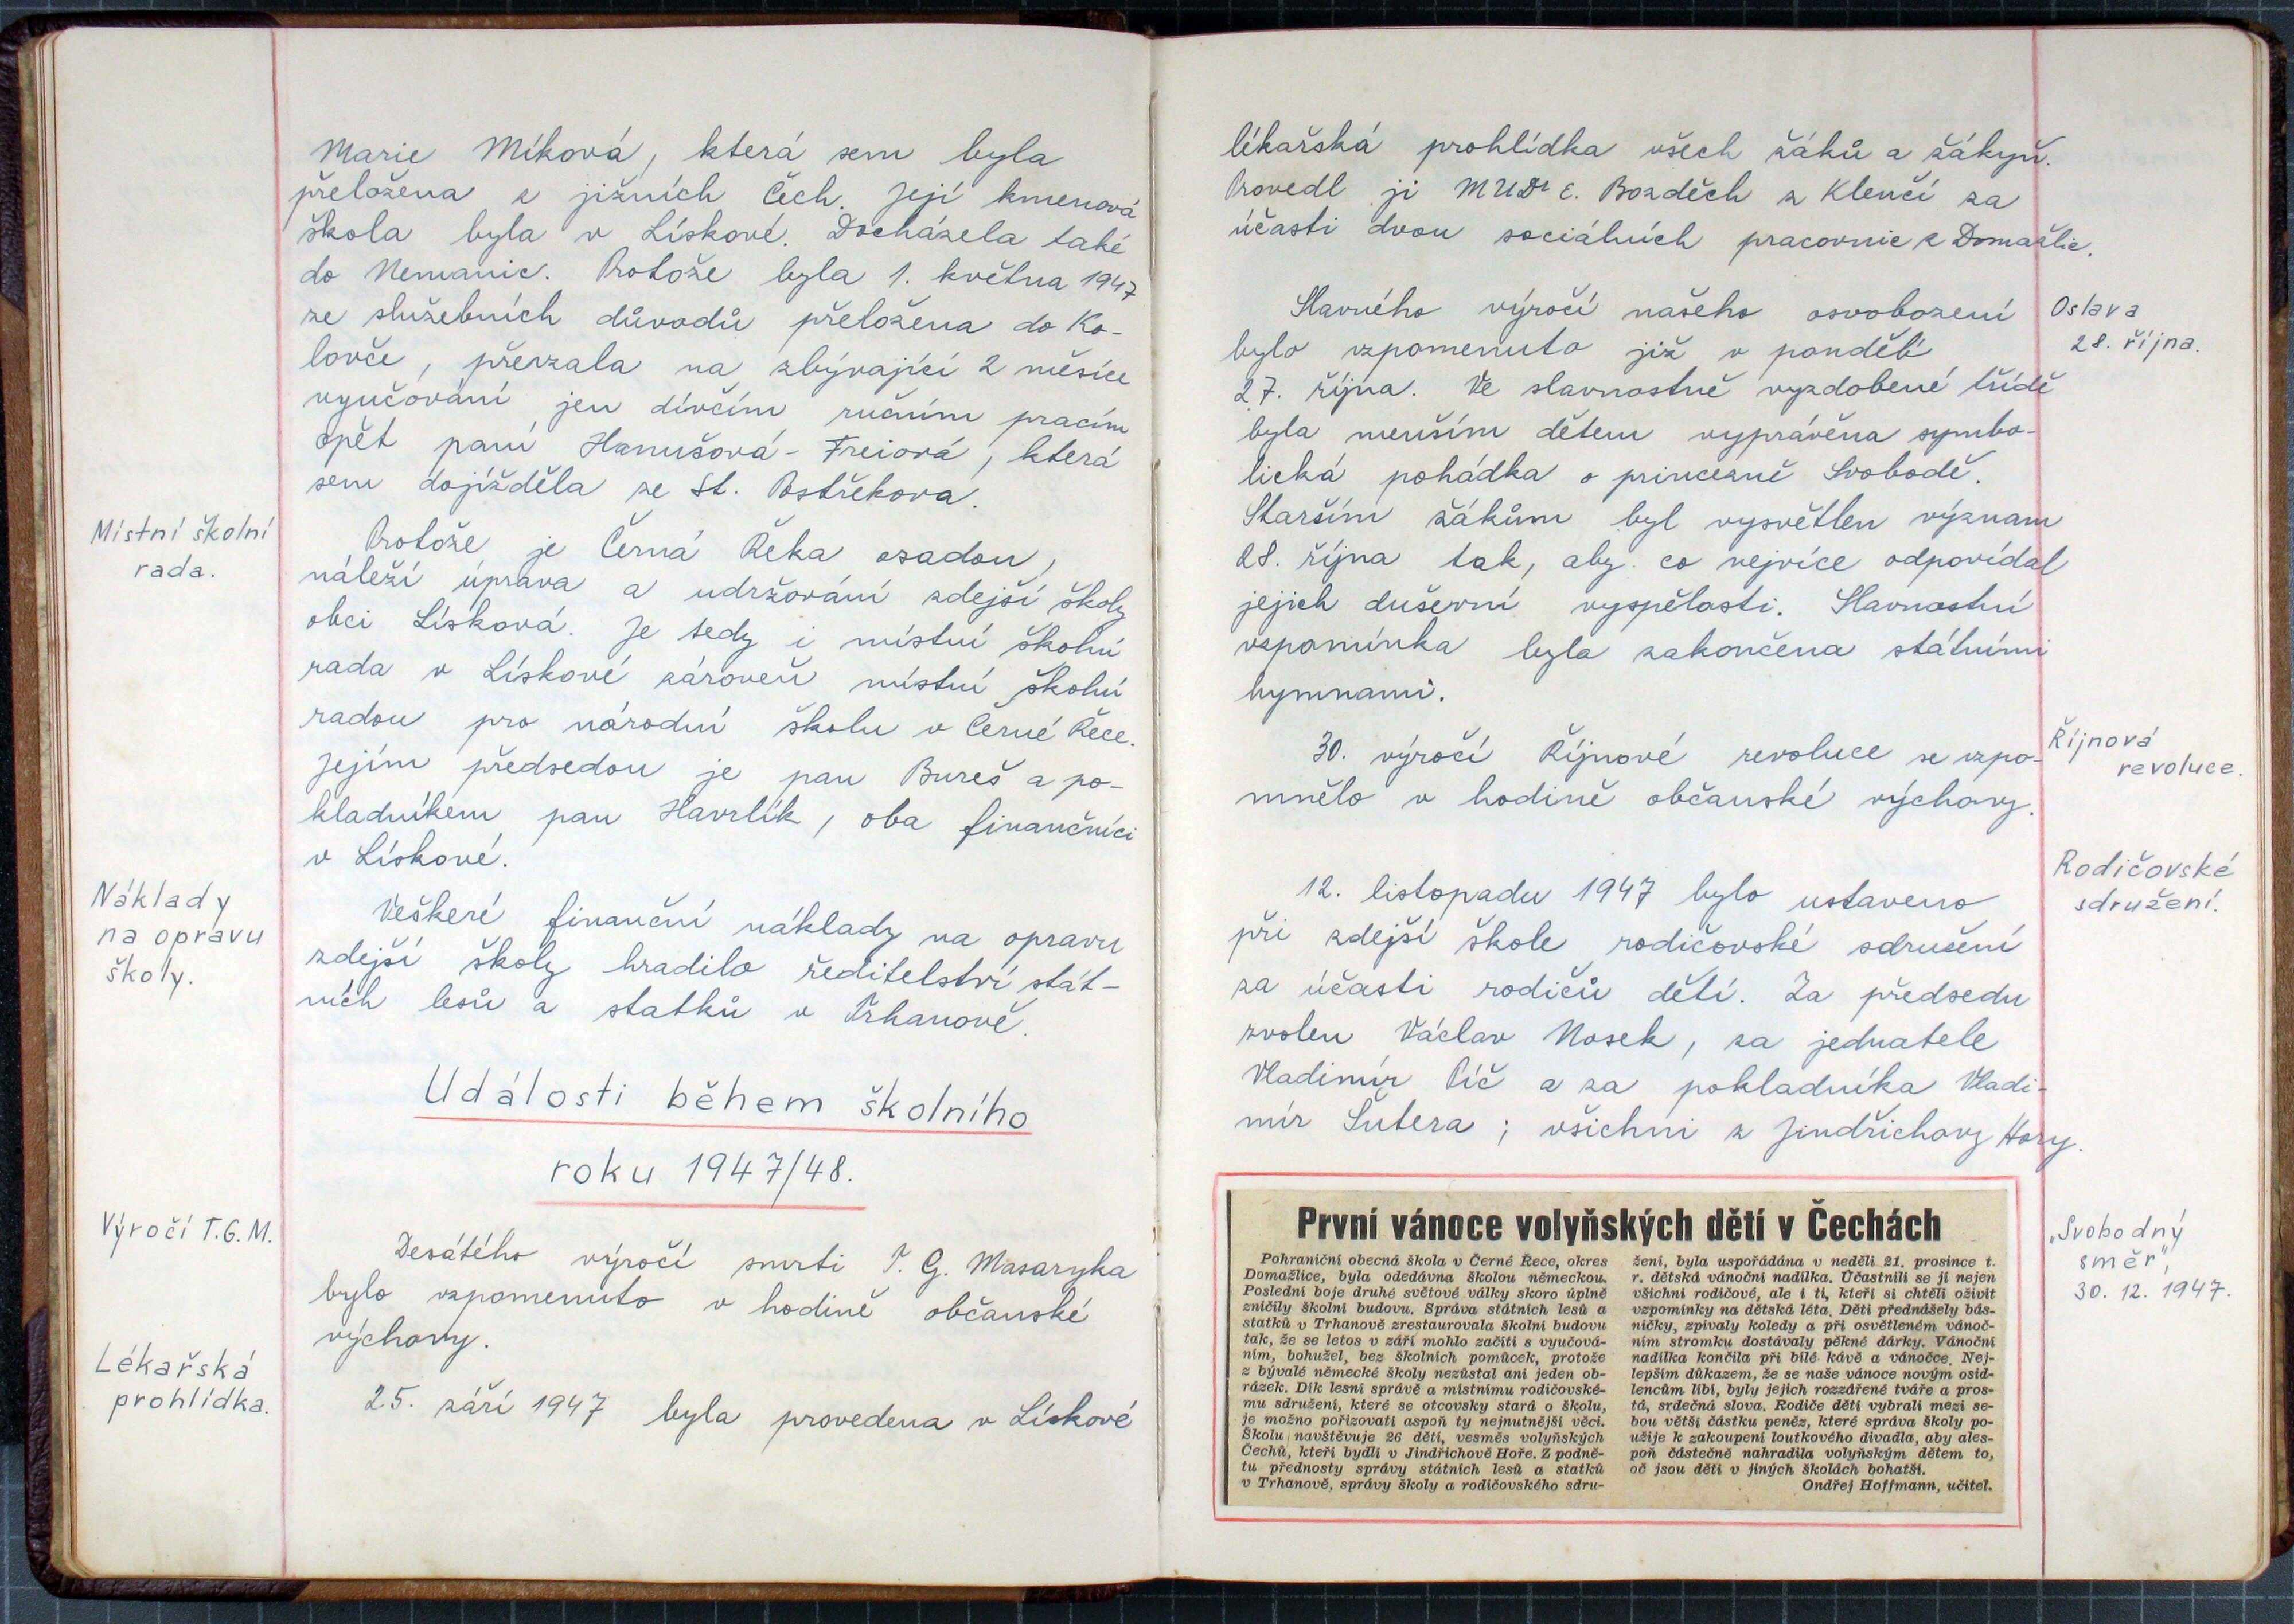 Marie Míková, která sem byla
přeložena z jižních Čech. Její kmenová
škola byla v Lískové. Docházela také
do Nemanic. Protože byla 1. května 1947
ze služebních důvodů přeložena do Ko-
lovče, převzala na zbývající 2 měsíce
vyučování jen dívčím ručním pracím
opět paní Hanušová-Freiová, která
sem dojížděla ze St. Postřekova.
Místní školní
rada.
Protože je Černá Řeka osadou,
náleží úprava a udržování zdejší školy
obci Lísková. Je tedy i místní školní
rada v Lískové zároveň místní školní
radou pro národní školu v Černé Řece.
Jejím předsedou je pan Bureš a po-
kladníkem pan Havrlík, oba finančníci
v Lískové.
Náklady
na opravu
školy.
Veškeré finanční náklady na opravu
zdejší školy hradilo ředitelství stát-
ních lesů a statků v Trhanově.
Události během školního
roku 1947/48.
Výročí T.G.M.
Desátého výročí smrti T. G. Masaryka
bylo vzpomenuto v hodině občanské
výchovy.
Lékařská
prohlídka.
25. září 1947 byla provedena v Lískové
lékařská prohlídka všech žáků a žákyň.
Provedl ji MUDr E. Bozděch z Klenčí za
účasti dvou sociálních pracovnic z Domažlic.
Oslava
28. října.
Slavného výročí našeho osvobození
bylo vzpomenuto již v pondělí
27. října. Ve slavnostně vyzdobené třídě
byla menším dětem vyprávěna symbo-
lická pohádka o princezně Svobodě.
Starším žákům byl vysvětlen význam
28. října tak, aby co nejvíce odpovídal
jejich duševní vyspělosti. Slavnostní
vzpomínka byla zakončena státními
hymnami.
Říjnová
revoluce.
30. výročí Říjnové revoluce se vzpo-
mnělo v hodině občanské výchovy.
Rodičovské
sdružení.
12. listopadu 1947 bylo ustaveno
při zdejší škole rodičovské sdružení
za účasti rodičů dětí. Za předsedu
zvolen Václav Nosek, za jednatele
Vladimír Píč a za pokladníka Vladi-
mír Šutera; všichni z Jindřichovy Hory.
„Svobodný
směr",
30. 12. 1947.
První vánoce volyňských dětí v Čechách
Pohraniční obecná škola v Černé Řece, okres
Domažlice, byla odedávna školou německou.
Poslední boje druhé světové války skoro úplně
zničily školní budovu. Správa státních lesů a
statků v Trhanově zrestaurovala školní budovu
tak, že se letos v září mohlo začíti s vyučová-
ním, bohužel, bez školních pomůcek, protože
z bývalé německé školy nezůstal ani jeden ob-
rázek. Dík lesní správě a místnímu rodičovské-
mu sdružení, které se otcovsky stará o školu,
je možno pořizovati aspoň ty nejnutnější věci.
Školu navštěvuje 26 dětí, vesměs volyňských
Čechů, kteří bydlí v Jindřichově Hoře. Z podně-
tu přednosty správy státních lesů a statků
v Trhanově, správy školy a rodičovského sdru-
žení, byla uspořádána v neděli 21. prosince t.
r. dětská vánoční nadílka. Účastnili se jí nejen
všichni rodičové, ale i ti, kteří si chtěli oživit
vzpomínky na dětská léta. Děti přednášely bás-
ničky, zpívaly koledy a při osvětleném vánoč-
ním stromku dostávaly pěkné dárky. Vánoční
nadílka končila při bílé kávě a vánočce. Nej-
lepším důkazem, že se naše vánoce novým osid-
lencům líbí, byly jejich rozzářené tváře a pros-
tá, srdečná slova. Rodiče dětí vybrali mezi se-
bou větší částku peněz, které správa školy po-
užije k zakoupení loutkového divadla, aby ales-
poň částečně nahradila volyňským dětem to,
oč jsou děti v jiných školách bohatší.
Ondřej Hoffmann, učitel.